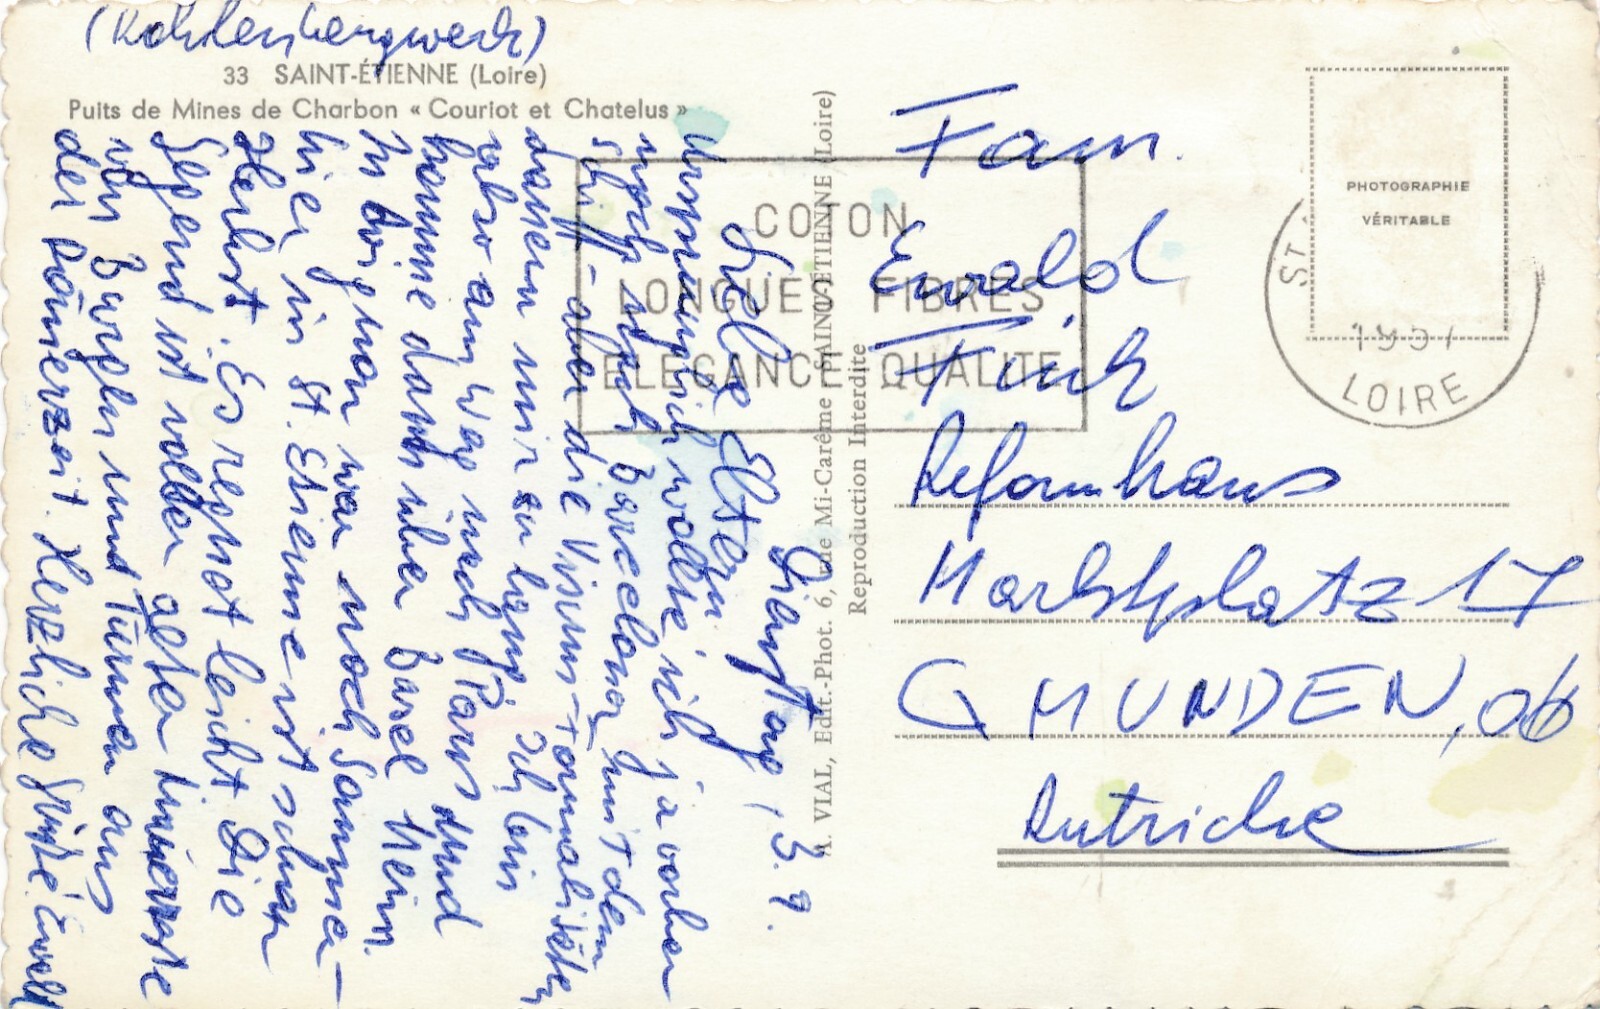 (Kohlenbergwerk)
33 SAINT-ÉTIENNE (Loire)
Puits de Mines de Charbon « Couriot et Chatelus »
Dienstag, 3.9.
Liebe Eltern
Ursprünglich wollte ich ja vorher
noch nach Barcelona mit dem
Schiff - aber die Visum-Formalitäten
dauern mir zu lang. Ich bin
also am Weg nach Paris und
komme dann über Basel heim.
In Avignon war noch Sommer -
hier in St. Etienne ist schon
Herbst. Es regnet leicht. Die
Gegend ist voller alter
von Burgen und Türmen aus
der Römerzeit. Herzliche Grüße Ewald
A. VIAL, Edit.-Phot. 6, rue Mi-Carême SAINT-ÉTIENNE (Loire)
Reproduction Interdite
COTON
LONGUES FIBRES
ELEGANCE QUALITE
PHOTOGRAPHIE
VÉRITABLE
ST
LOIRE
Fam.
Ewald
Reformhaus
Marktplatz 17
GMUNDEN, OÖ
Autriche